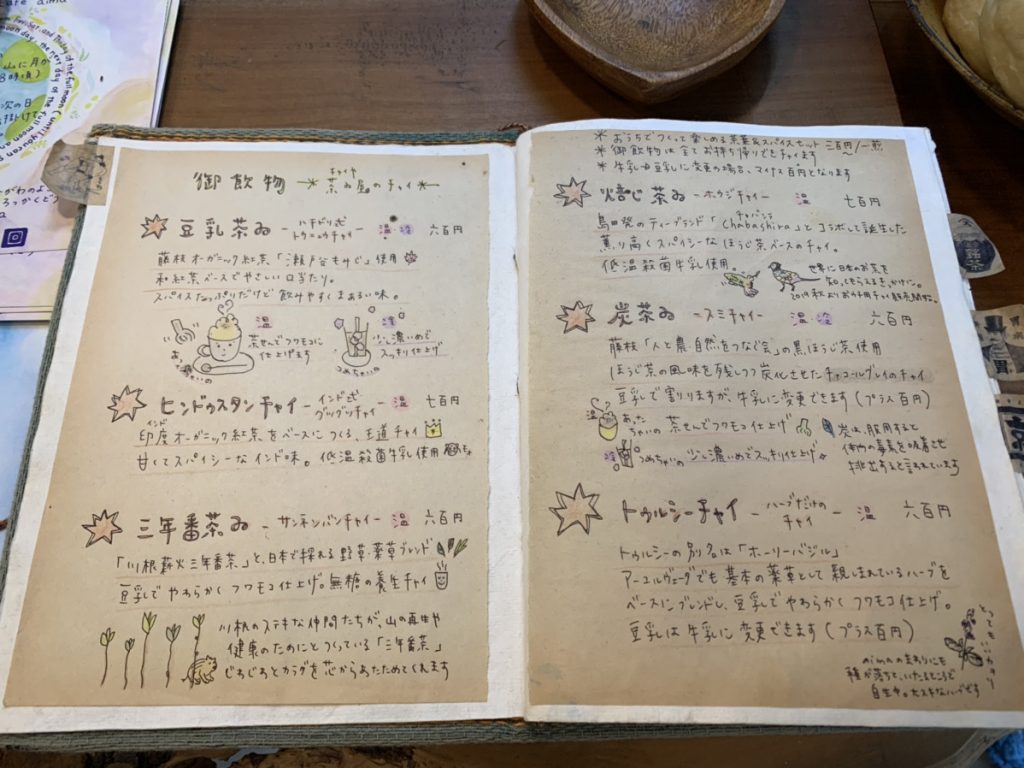 御飲物 チャイヤ 茶ゐ屋のチャイ
豆乳茶ゐ ハチドリ式 トウニュウチャイ 温・冷 六百円
藤枝オーガニック紅茶「瀬戸谷もみじ」使用
和紅茶ベースでやさしい口当たり。
スパイスたっぷりだけど飲みやすくまあるい味。
温
茶せんでフワモコに
仕上げます
冷
少し濃いめで
スッキリ仕上げ
つめちゃいの
ヒンドゥスタンチャイ インド式 グツグツチャイ 温 七百円
インド
印度オーガニック紅茶をベースにつくる、王道チャイ
甘くてスパイシーなインド味。低温殺菌牛乳使用
三年番茶ゐ -サンネンバンチャイ- 温 六百円
「川根薪火三年番茶」と、日本で採れる野草・薬草ブレンド
豆乳でやわらかくフワモコ仕上げ。無糖の養生チャイ
川根のステキな仲間たちが、山の再生や
健康のためにとつくっている「三年番茶」
じわじわとカラダを芯からあたためてくれます
*おうちでつくって楽しめる茶葉&スパイスセット 三百円/一煎
*御飲物は全てお持ち帰りできます
*牛乳→豆乳に変更の場合、マイナス百円となります
焙じ茶ゐ -ホウジチャイ- 温 七百円
島田発のティーブランド「Chabashira」とコラボして誕生した
チャバシラ
薫り高くスパイシーなほうじ茶ベースのチャイ。
低温殺菌牛乳使用。
世界に日本のお茶を
炭茶ゐ -スミチャイ- 温 冷 六百円
藤枝「人と農・自然をつなぐ会」の黒ほうじ茶使用
ほうじ茶の風味を残しつつ炭化させたチャコールグレイのチャイ
豆乳で割りますが、牛乳に変更できます(プラス百円)
温 あったちゃいの 茶せんでフワモコ仕上げ
冷 つめちゃいの 少し濃いめでスッキリ仕上げ
炭は、服用すると
体内の毒素を吸着させ
排出すると言われています
トゥルシーチャイ -ハーブだけのチャイ- 温 六百円
トゥルシーの別名は「ホーリーバジル」
アーユルヴェーダでも基本の薬草として親しまれているハーブを
ベースにブレンドし、豆乳でやわらかくフワモコ仕上げ。
豆乳は牛乳に変更できます(プラス百円)
とってもいいかおり
aimaのまわりにも
種が落ちて、いたるところで